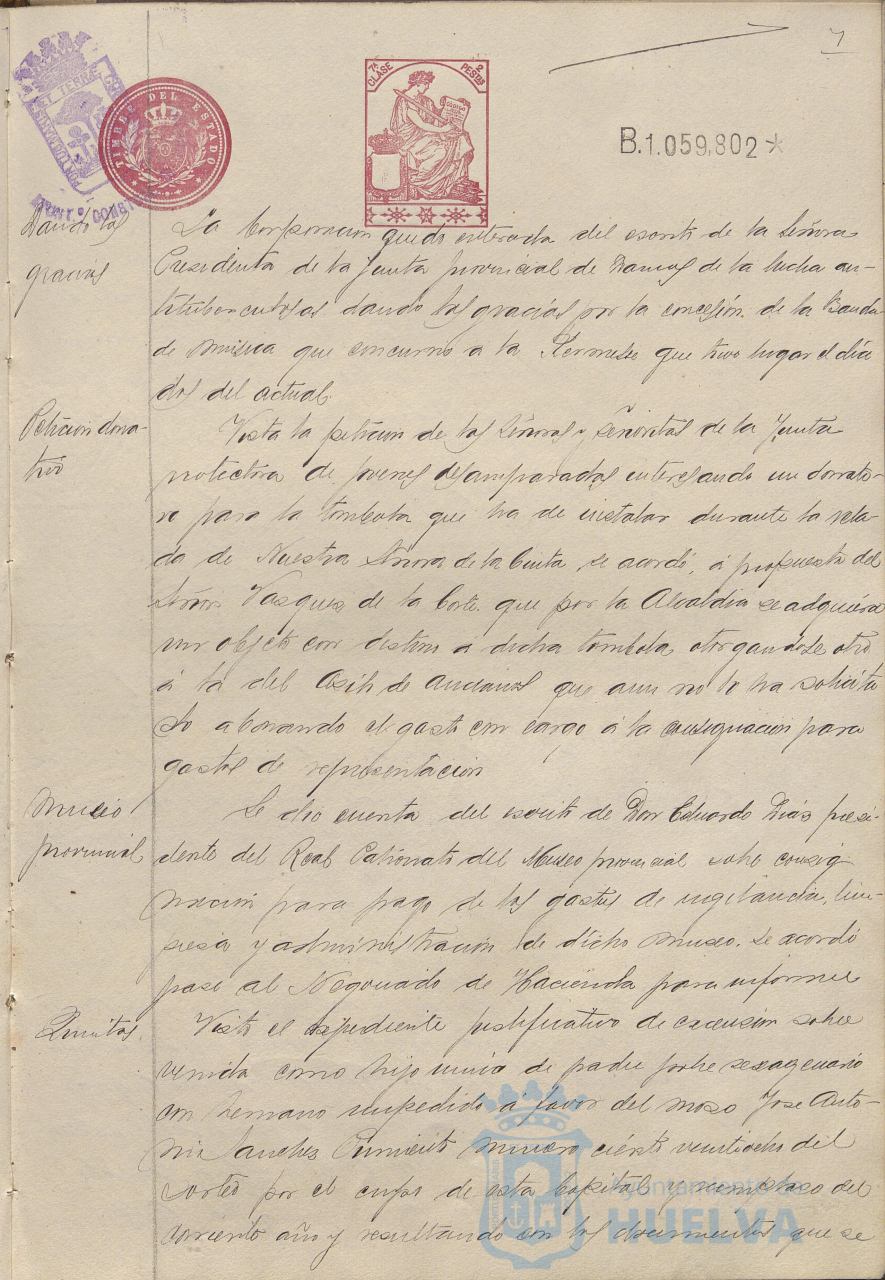 7
7ª CLASE
2 PESTAS
CODIGO
TIMBRE DEL ESTADO
B.1.059.802*
Dando las
gracias
La Corporacion quedó enterada del escrito de la Señora
Presidenta de la Junta provincial de Damas de la lucha an-
tituberculosas dando las gracias por la concesión de la Banda
de música que concurrió a la Kermese que tuvo lugar el día
dos del actual.
Peticion dona-
tivo
Vista la petición de las Señoras y Señoritas de la Junta
protectora de jovenes desamparadas interesando un donati-
vo para la tombola que ha de instalar durante la vela-
da de Nuestra Señora de la Cinta se acordó, á propuesta del
Señor Vasquez de la Corte que por la Alcaldia se adquiera
un objeto con destino a dicha tombola otorgandose otro
á la del Asilo de Ancianos que aun no lo ha solicita
do abonando el gasto con cargo á la consignacion para
gastos de representacion
Museo
provincial
Se dio cuenta del escrito de Don Eduardo Diáz presi-
dente del Real Patronato del Museo provincial sobre consig
nacion para pago de los gastos de vigilancia, lim-
piesa y administración de dicho museo. se acordó
pase al Negociado de Haciénda para informe
Quintas.
Visto el expediente justificativo de excension sobre
venida como hijo unico de padre pobre sexagenario
con hermano impedido á favor del moso Jose Anto-
nio Sanches numero ciento veintiocho del
sorteo por el cupo de esta Capital y reemplaso del
corriente año y resultando con los documentos que se
Ayuntamiento de
HUELVA